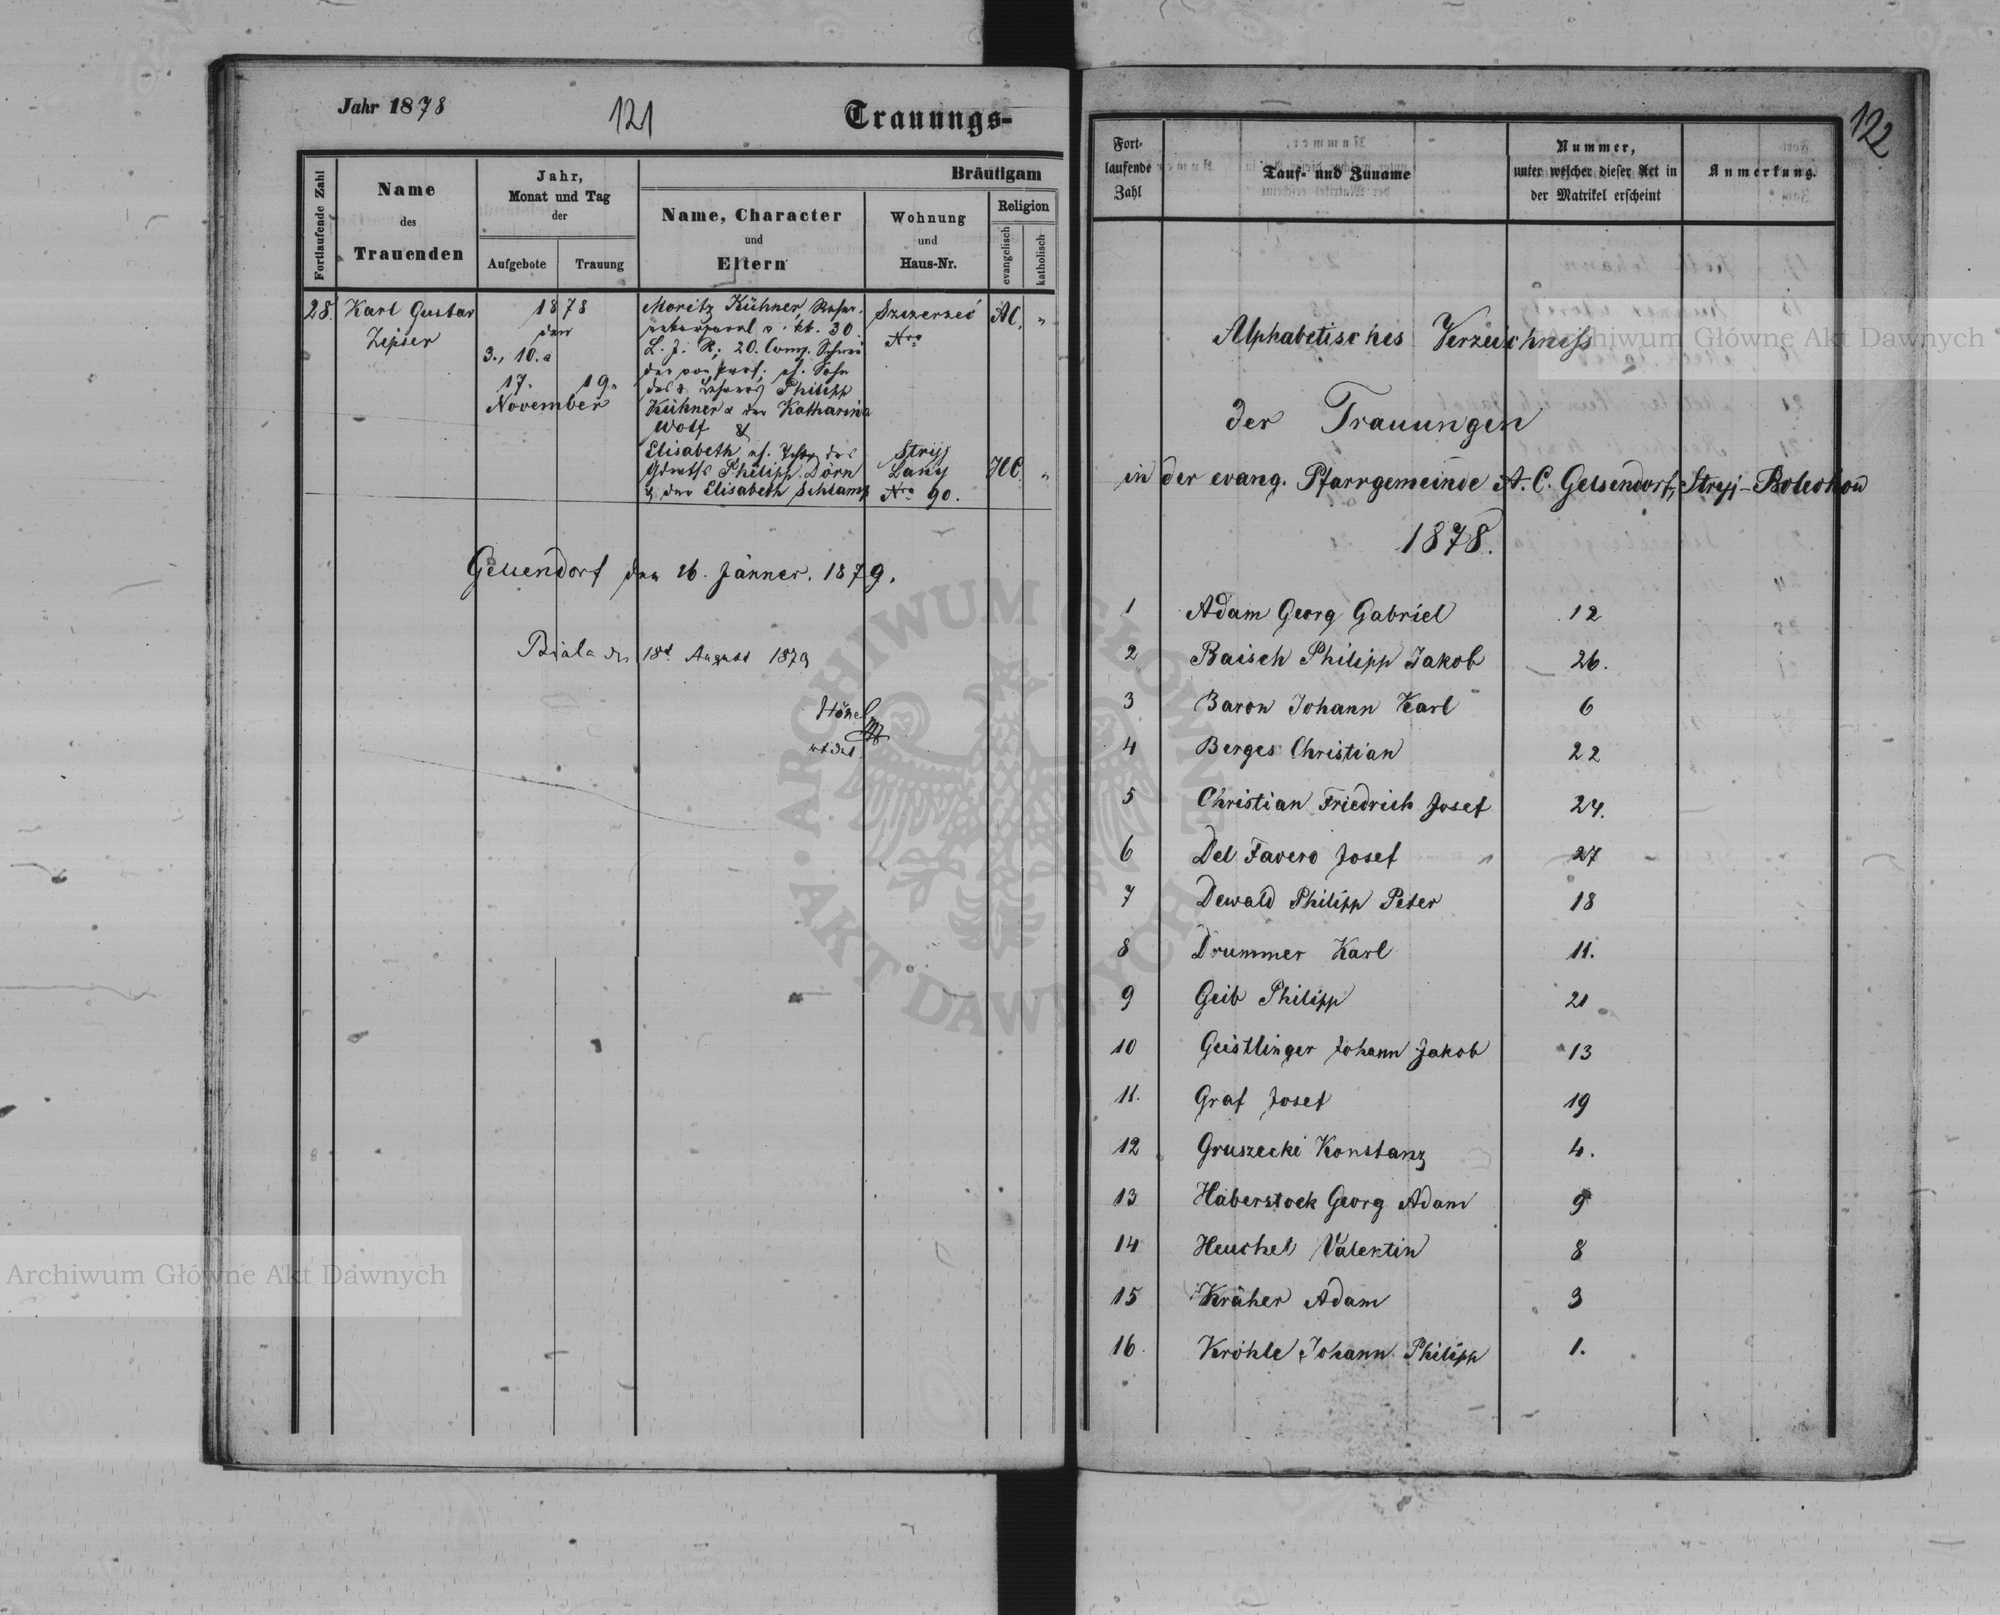 Jahr 1878
121
Trauungs-
Fortlaufende Zahl
Name
des
Trauenden
Jahr,
Monat und Tag
der
Aufgebote
Trauung
Bräutigam
Name, Character
und
Eltern
Wohnung
und
Haus-Nr.
Religion
evangelisch
katholisch
28. Karl Gustav
Zipser
1878
den
3., 10. a
17. 19.
November
Moritz Kühner,
30
20. Comp.
Philipp
Kühner & der Katharina
Wolf &
Elisabeth
Philipp Dörn
& der Elisabeth Schlamp
Szczerzec
Nro
Stryj
Lany
Nro 90.
AC. "
HC. "
Gelsendorf den 26. Jänner. 1879.
Biala den 18t August 1879
Hönel
122
Fort-
laufende
Zahl
Tauf- und Zuname
Nummer,
unter welcher dieser Act in
der Matrikel erscheint
Anmerkung.
Alphabetisches Verzeichniss
der Trauungen
in der evang. Pfarrgemeinde A. C. Gelsendorf, Stryj-Bolechow
1878.
1 Adam Georg Gabriel 12
2 Baisch Philipp Jakob 26.
3 Baron Johann Karl 6
4 Berges Christian 22
5 Christian Friedrich Josef 24.
6 Del Favero Josef 27
7 Dewald Philipp Peter 18
8 Drummer Karl 11.
9 Geib Philipp 21
10 Geistlinger Johann Jakob 13
11. Graf Josef 19
12 Gruszecki Konstanz 4.
13 Haberstock Georg Adam 9
14 Heuchel Valentin 8
15 Kräher Adam 3
16 Kröhle Johann Philipp 1.
Archiwum Główne Akt Dawnych
Archiwum Główne Akt Dawnych
ARCHIWUM GŁÓWNE • AKT DAWNYCH •